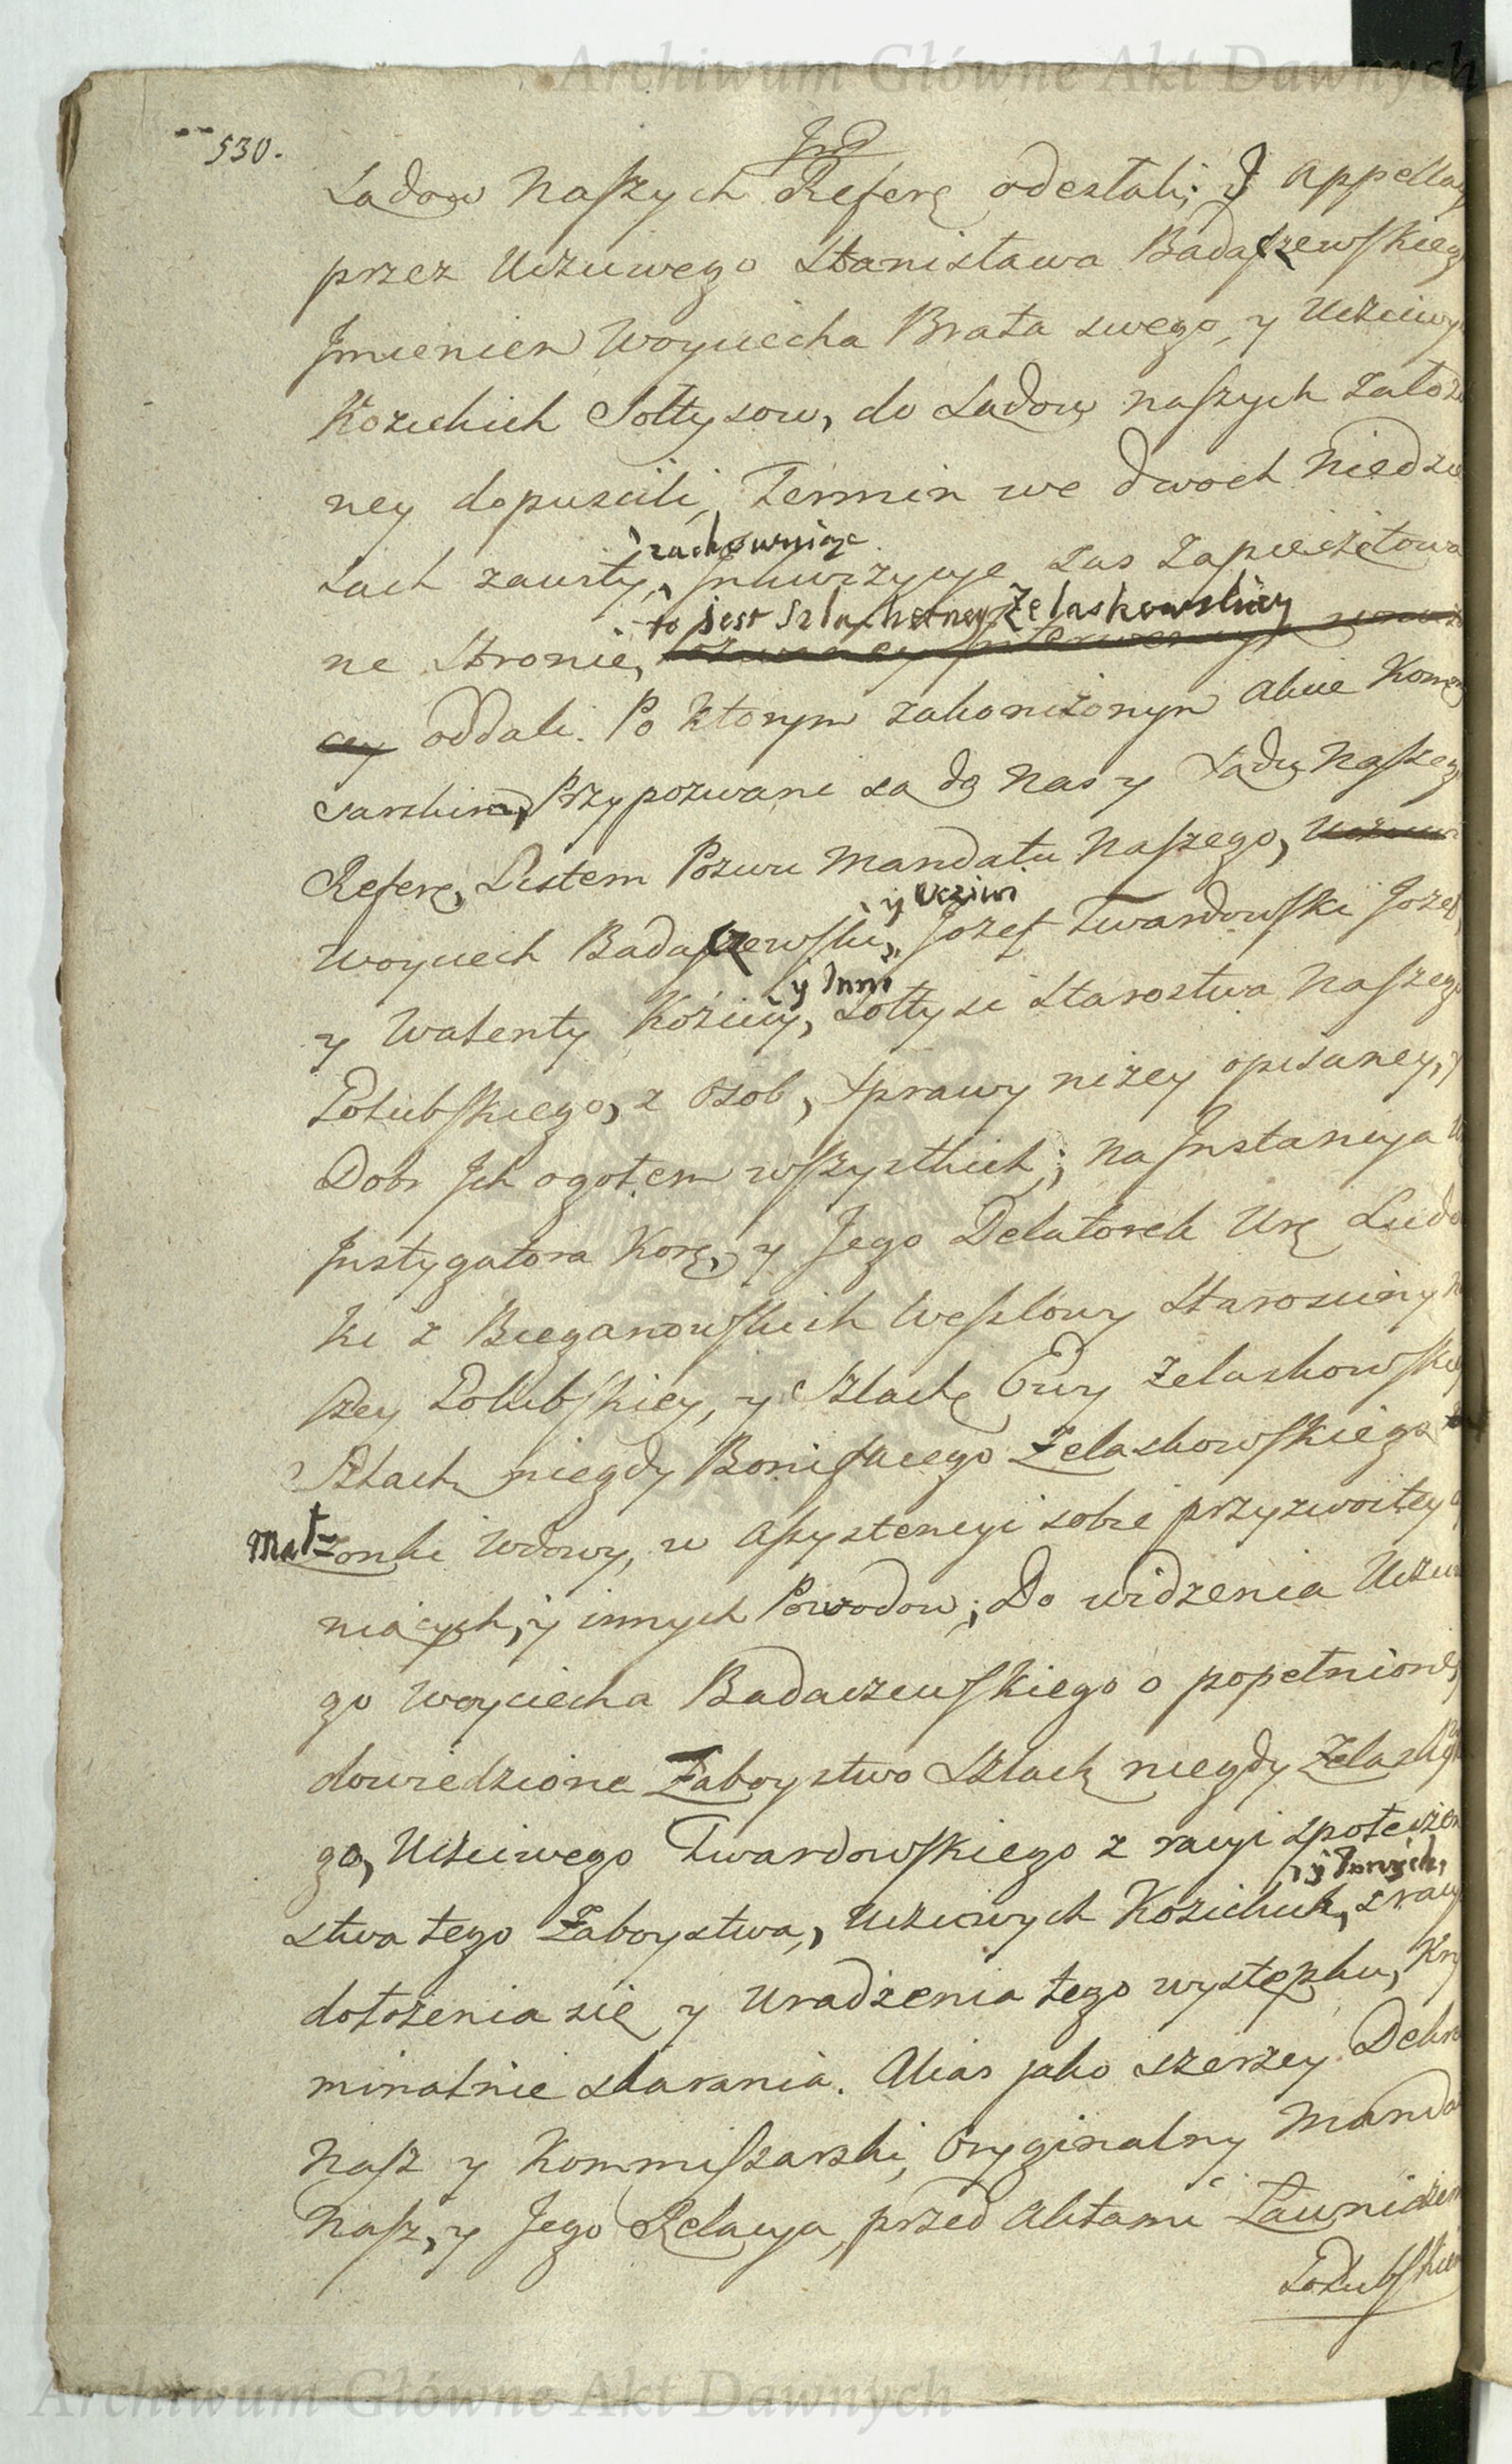 Archiwum Główne Akt Dawnych
530.
Jmd
Sadow Naszych Refere odesłali; I Appellacy
przez Uczciwego Stanisława Badaszewskieg
Jmieniem Woyciecha Brata swego, y Uczciwy
Kozickich Sołtysow, do Sadow naszych założo
ney dopuscili, Termin we dwoch Niedzie
lach zawity, Inkwizycye zas zapieczętowa
zachowuiąc
to jest Szlachetney Żelaskowskiey
ne Stronie,
cey oddali. Po ktorym zakonczonym Akcie Kommi
sarskim, Przypozwani sa do Nas y Sadu Naszeg
Refere, Listem Pozwu Mandatu Naszego, Uczciwi
y Uczciwi
Woyciech Badaszewski, Jozef Twardowski Jozef
y Inni
y Walenty Koziccy, Sołtysi Starostwa Naszeg
Tołubskiego, z Osob, Sprawy niżey opisaney, y
Dobr Ich ogołem wszystkich; na Instancya
Instygatora Kore, y Jego Delatorek Ure Ludo
ki z Bieganowskich Wesslowy Starosciny N
szey Tolubskiey, y Szlache Ewy Żelaskowskiey
Szlach niegdy Bonifacego Żelaskowskiego
Małżonki Wdowy, w Assystencyi sobie przyzwoitey
niących, y innych Powodow; Do widzenia Uczciwe
go Woyciecha Badaczewskiego o popełnione
dowiedzione Zaboystwo Szlach niegdy Żelaskows
go, Uczciwego Twardowskiego z racyi społeczen
y Innych,
stwa tego Zaboystwa, Uczciwych Kozickich, z racy
dołożenia się y uradzenia tego występku, Kry
minalnie skarania. Alias jako szerzey Dekre
Nasz y Kommissarski, Oryginalny Manda
Nasz, y Jego Relacya, przed Aktami Ławniczem
Tołubskiem
Archiwum Główne Akt Dawnych